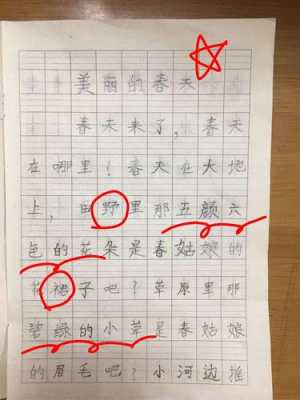 美丽的春天
春天来了，春天
在哪里！春天在大地
上，田野里那五颜六
色的花朵是春姑娘的
花裙子吧？草原里那
碧绿的小草是春姑娘
的眉毛吧？小河边摇